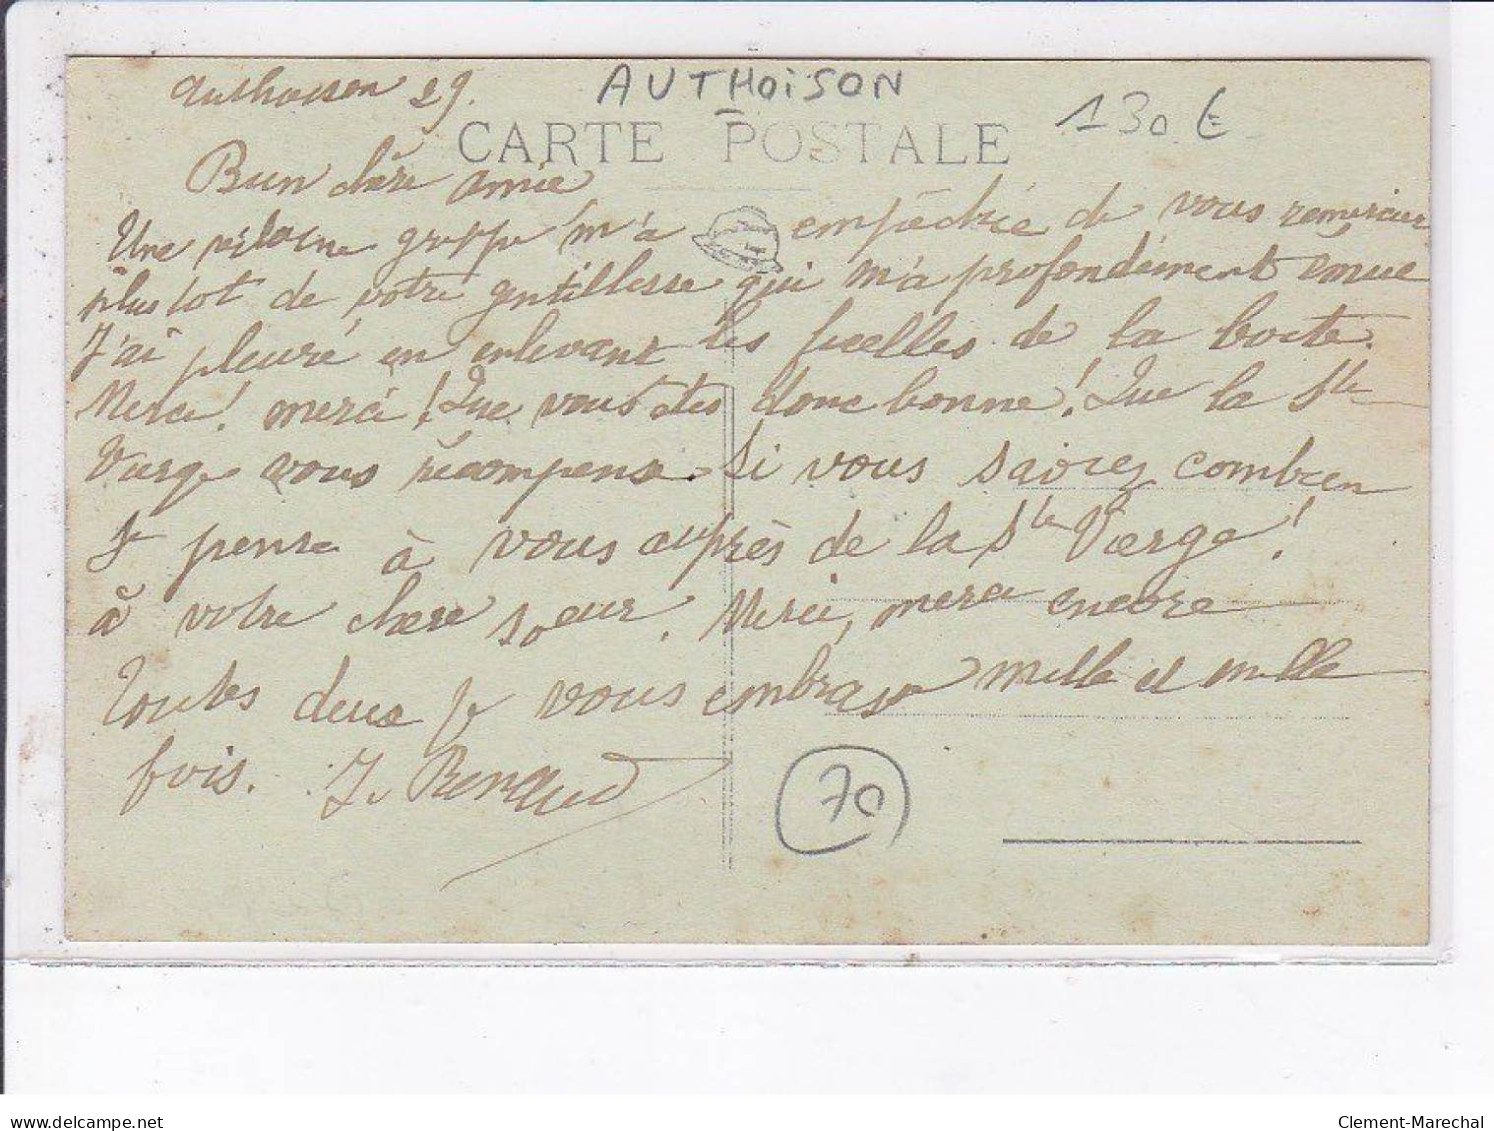 Authoison 29.
AUTHOiSON
130 €
CARTE POSTALE
Bien chère amie
Une vilaine grippe m'a empêchée de vous remercier
plus tot de votre gentillesse qui m'a profondément émue
J'ai pleuré en enlevant les ficelles de la boite.
Merci! merci! Que vous êtes donc bonne! Que la Ste
Vierge vous récompense. Si vous saviez combien
Je pense à vous auprès de la Ste Vierge!
à votre chère soeur. Merci, merci encore
Toutes deux je vous embrasse mille et mille
fois. J. Renaud
70
www.delcampe.net
Clement-Marechal